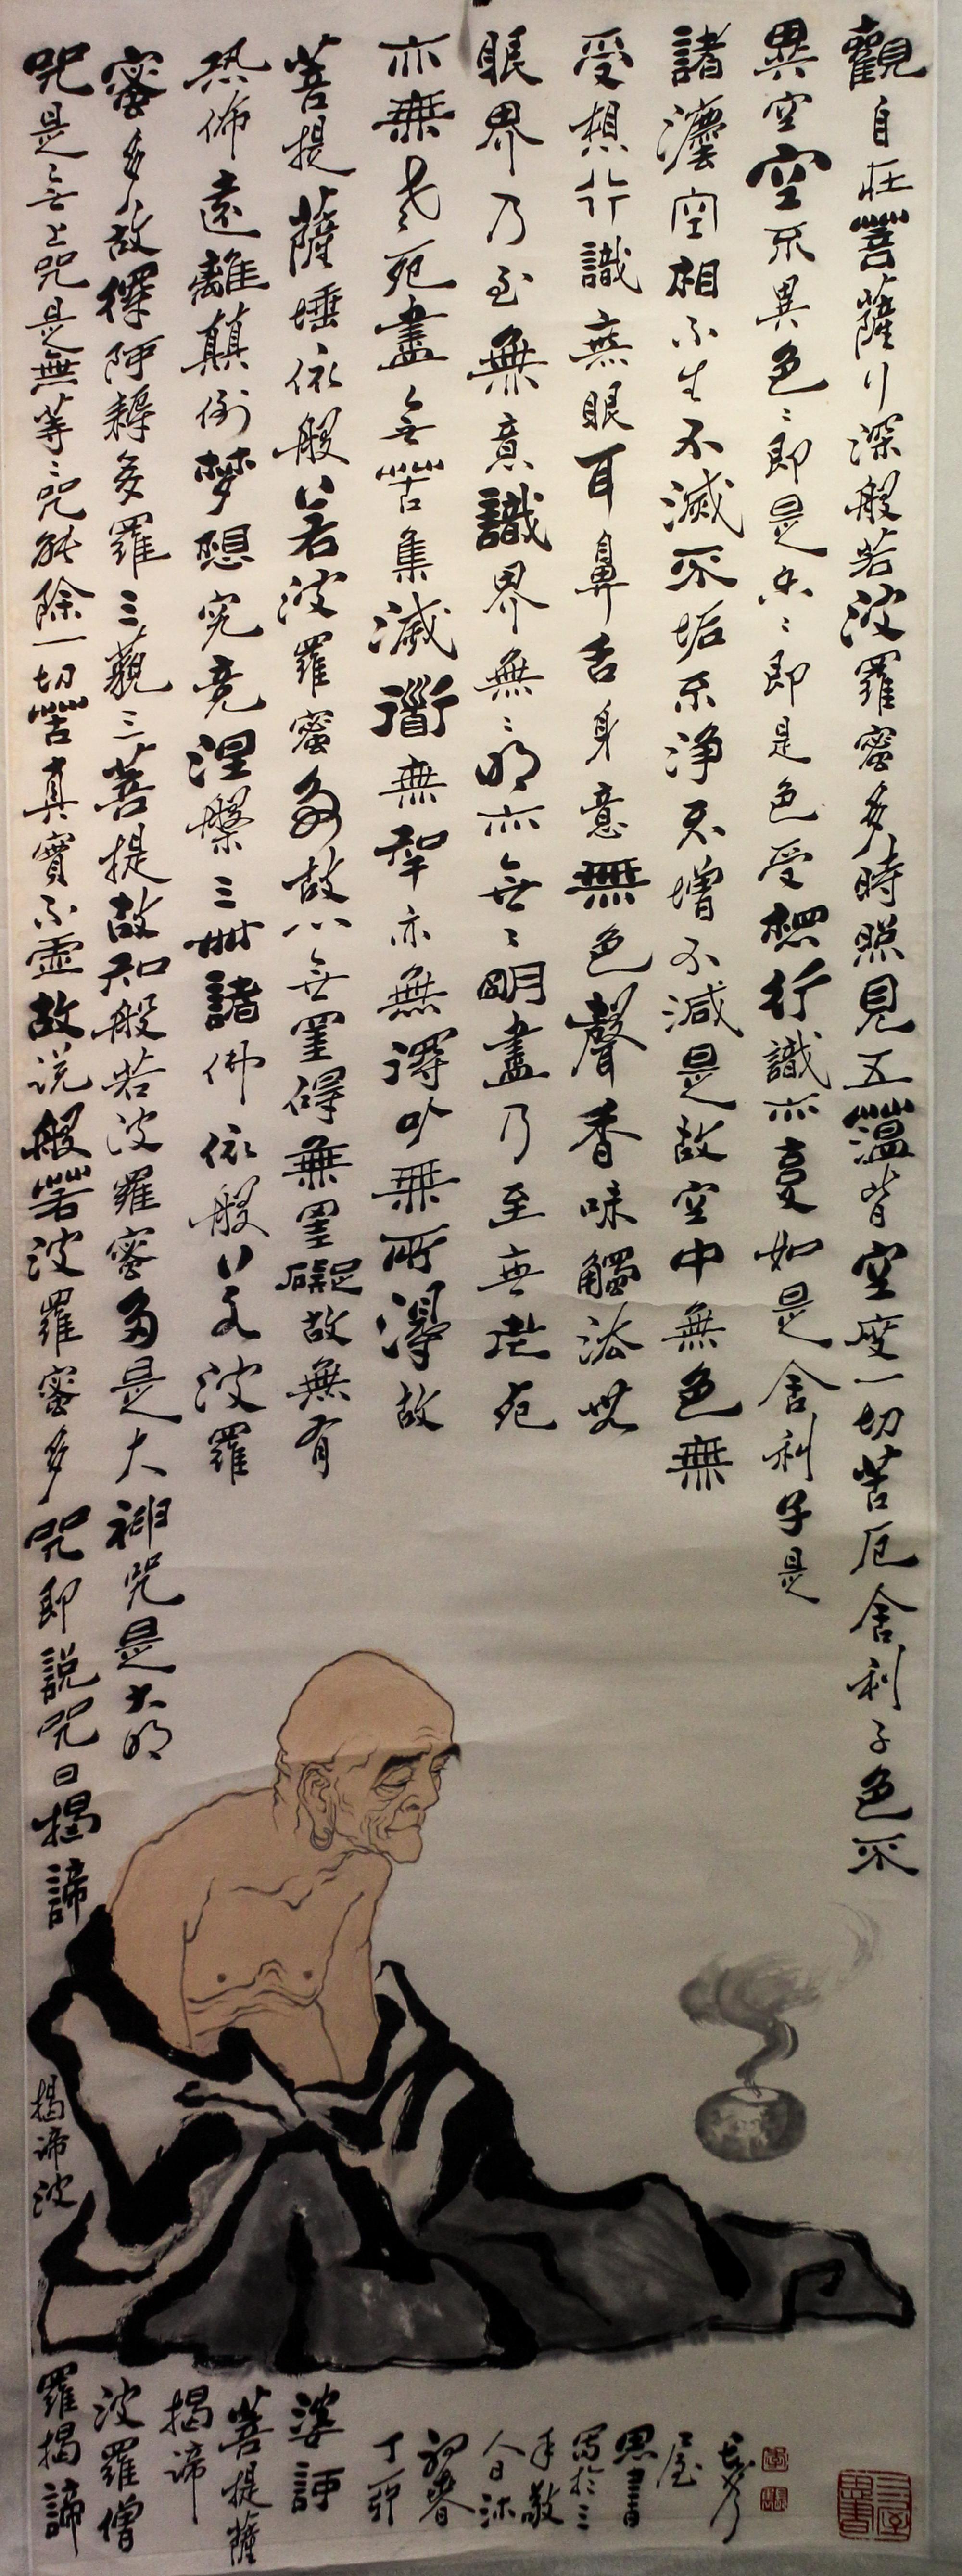 觀自在菩薩行深般若波羅蜜多時照見五蘊皆空度一切苦厄舍利子色不
異空空不異色〻即是空〻即是色受想行識亦復如是舍利子是
諸灋空相不生不滅不垢不淨不增不減是故空中無色無
受想行識無眼耳鼻舌身意無色聲香味觸法無
眼界乃至無意識界無〻明亦無〻明盡乃至無老死
亦無老死盡無苦集滅道無智亦無得以無所得故
菩提薩埵依般若波羅蜜多故心無罣碍無罣礙故無有
恐佈遠離顛倒梦想究竟涅槃三世諸佛依般若波羅
蜜多故得阿耨多羅三藐三菩提故知般若波羅蜜多是大神咒是大明
咒是無上咒是無等〻咒能除一切苦真實不虛故说般若波羅蜜多咒即説咒曰揭諦
揭諦波
羅揭諦
波羅僧
揭諦
菩提薩
婆訶
丁卯
初春
人日沐
手敬
寫於三
思書
屋